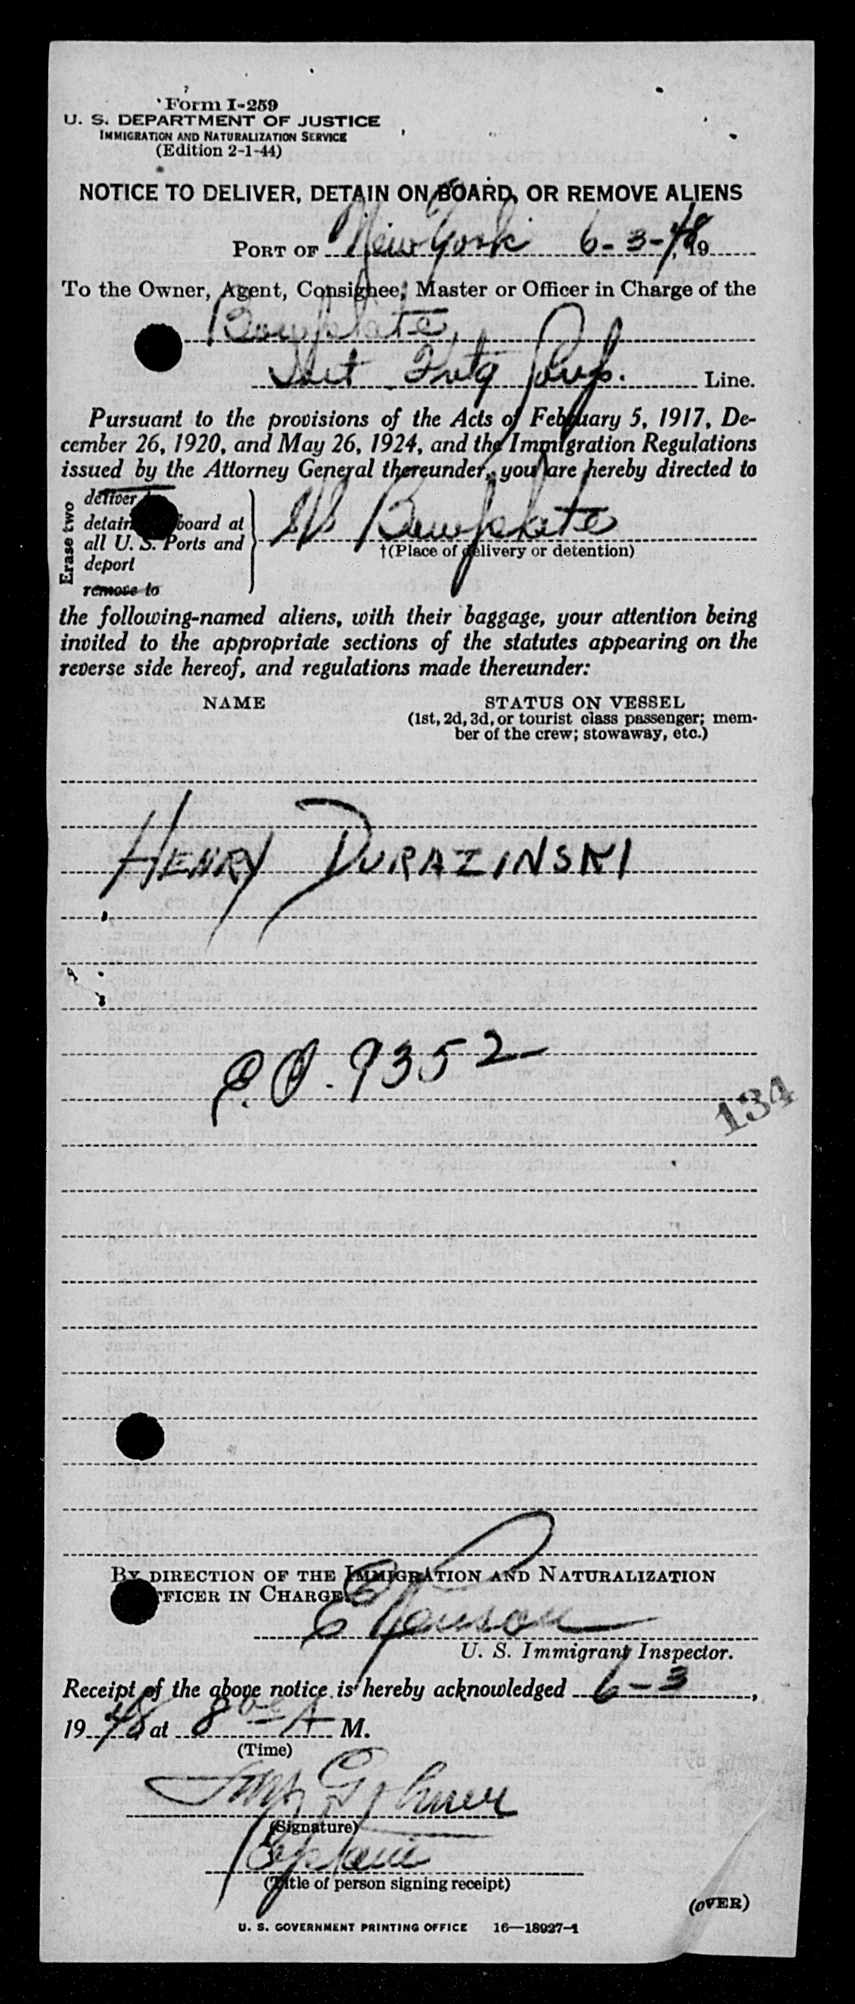 Form I-259
U. S. DEPARTMENT OF JUSTICE
IMMIGRATION AND NATURALIZATION SERVICE
(Edition 2-1-44)
NOTICE TO DELIVER, DETAIN ON BOARD, OR REMOVE ALIENS
PORT OF New York 6-3-48, 19
To the Owner, Agent, Consignee, Master or Officer in Charge of the
Bowplate
Corp. Line.
Pursuant to the provisions of the Acts of February 5, 1917, De-
cember 26, 1920, and May 26, 1924, and the Immigration Regulations
issued by the Attorney General thereunder, you are hereby directed to
Erase two
deliver
detain board at
all U. S. Ports and
deport
remove to
SS Bowplate
†(Place of delivery or detention)
the following-named aliens, with their baggage, your attention being
invited to the appropriate sections of the statutes appearing on the
reverse side hereof, and regulations made thereunder:
NAME STATUS ON VESSEL
(1st, 2d, 3d, or tourist class passenger; mem-
ber of the crew; stowaway, etc.)
HENRY DURAZINSKI
9352
134
BY DIRECTION OF THE IMMIGRATION AND NATURALIZATION
OFFICER IN CHARGE.
U. S. Immigrant Inspector.
Receipt of the above notice is hereby acknowledged 6-3,
1948 at 8 00 A M.
(Time)
(Signature)
(Title of person signing receipt)
(OVER)
U. S. GOVERNMENT PRINTING OFFICE 16—18927-1